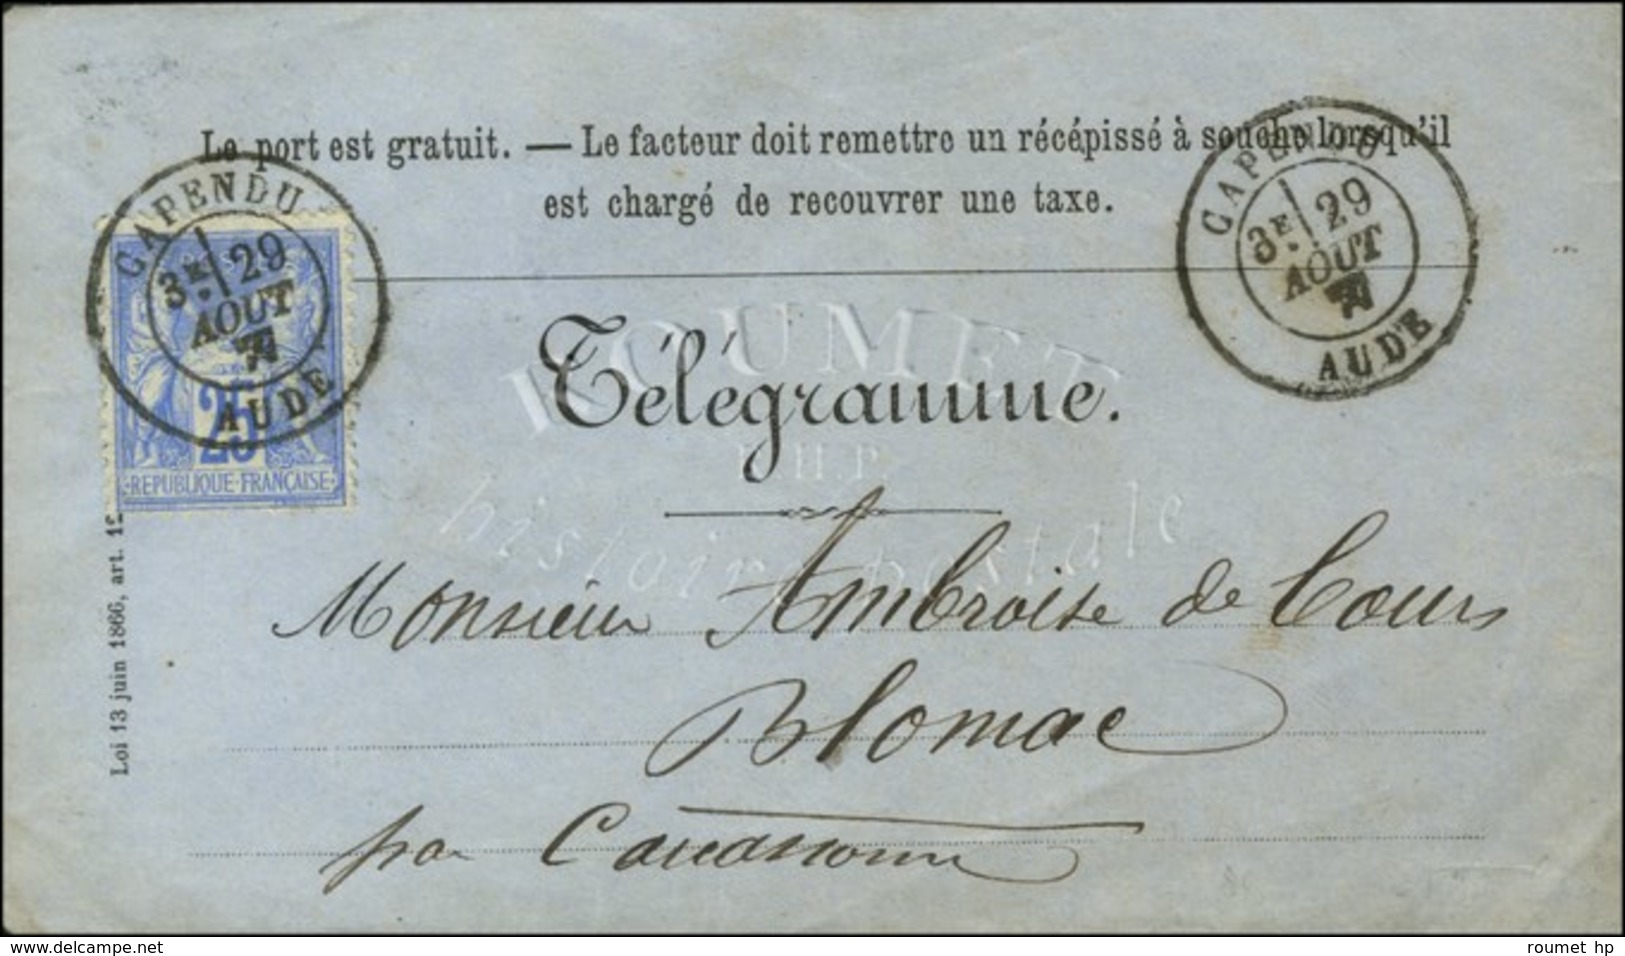 Le port est gratuit. — Le facteur doit remettre un récépissé à souche lorsqu'il
est chargé de recouvrer une taxe.
CAPENDU
3E 29
AOUT
AUDE
25
REPUBLIQUE FRANÇAISE
CAPENDU
3E 29
AOUT
AUDE
ROUMET
H.P.
histoire postale
Télégramme.
Loi 13 juin 1866, art. 12
Monsieur Ambroise de Cours
Blomac
par Carcassonne
delcampe.net
roumet hp